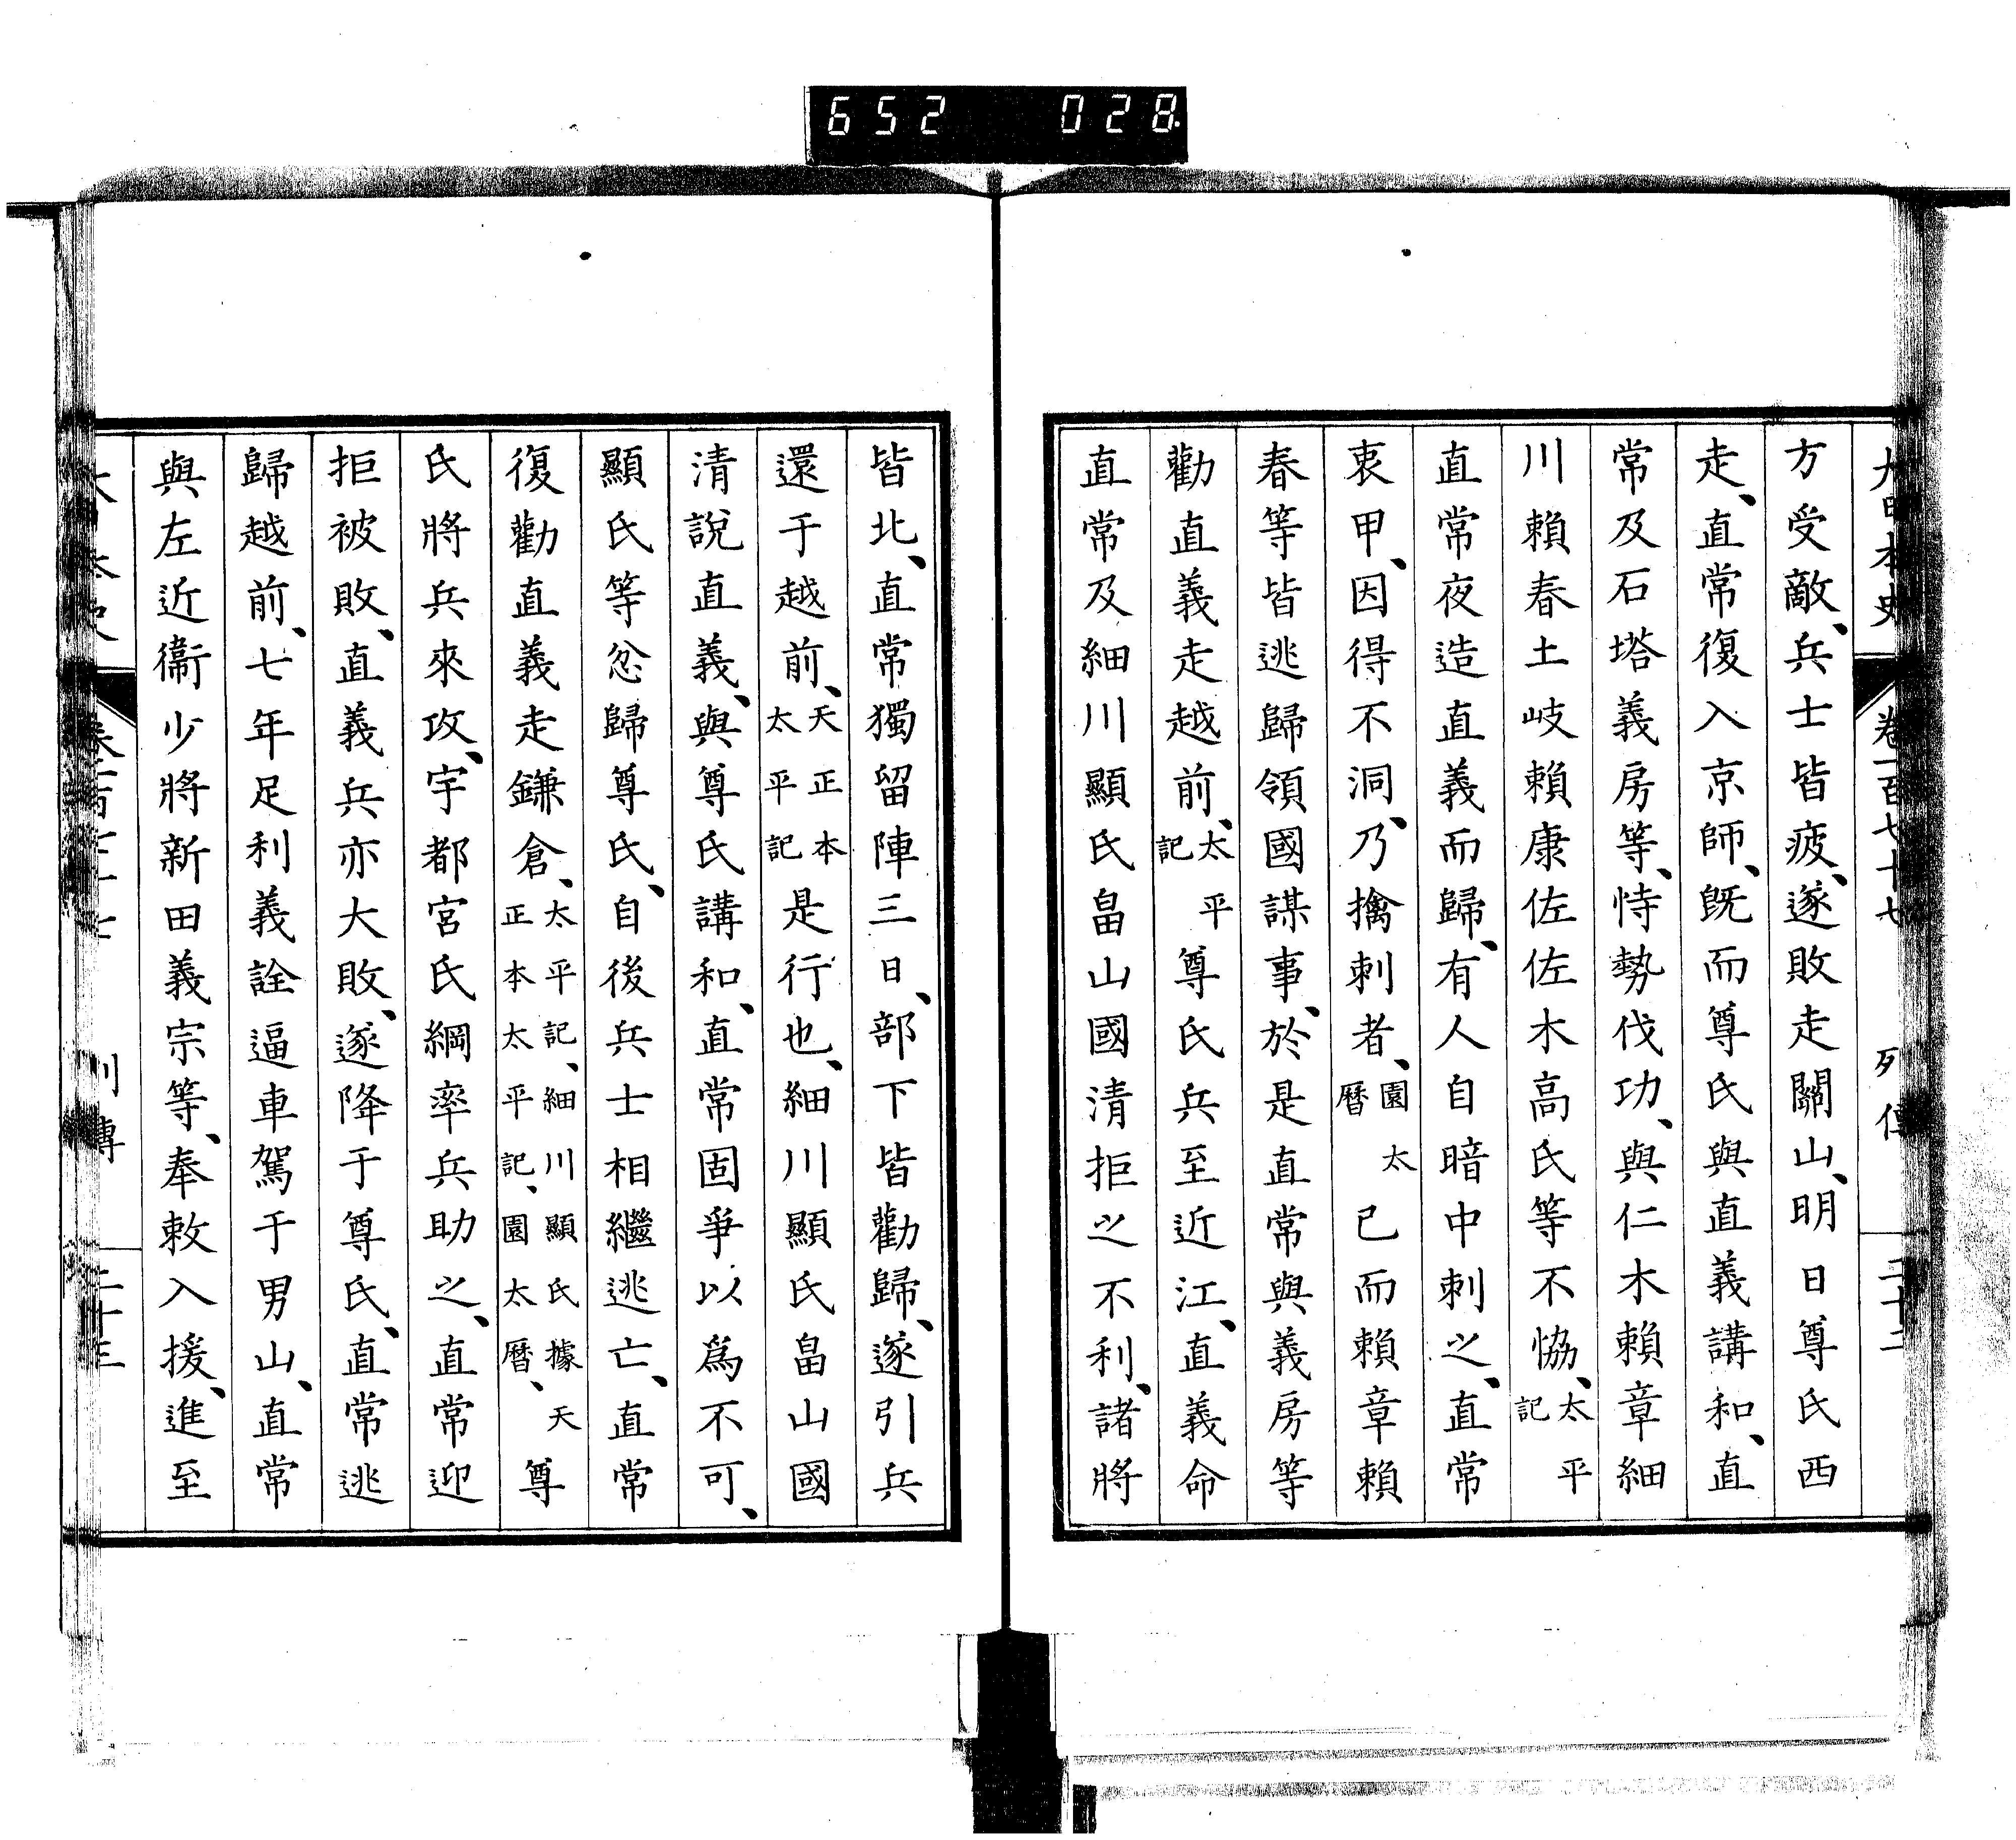 652 028
大日本史 卷一百七十七 列傳 二十二
方受敵、兵士皆疲、遂敗走關山、明日尊氏西
走、直常復入京師、既而尊氏與直義講和、直
常及石塔義房等、恃勢伐功、與仁木賴章細
川賴春土岐賴康佐佐木高氏等不恊、太平記
直常夜造直義而歸、有人自暗中刺之、直常
衷甲、因得不洞、乃擒刺者、園太曆 已而賴章賴
春等皆逃歸領國謀事、於是直常與義房等
勸直義走越前、太平記 尊氏兵至近江、直義命
直常及細川顯氏畠山國清拒之不利、諸將
皆北、直常獨留陣三日、部下皆勸歸、遂引兵
還于越前、天正本太平記 是行也、細川顯氏畠山國
清說直義、與尊氏講和、直常固爭以爲不可、
顯氏等忿歸尊氏、自後兵士相繼逃亡、直常
復勸直義走鎌倉、太平記、細川顯氏據天正本太平記、園太曆、 尊
氏將兵來攻、宇都宮氏綱率兵助之、直常迎
拒被敗、直義兵亦大敗、遂降于尊氏、直常逃
歸越前、七年足利義詮逼車駕于男山、直常
與左近衞少將新田義宗等、奉敕入援、進至
大日本史 卷一百七十七 列傳 二十三